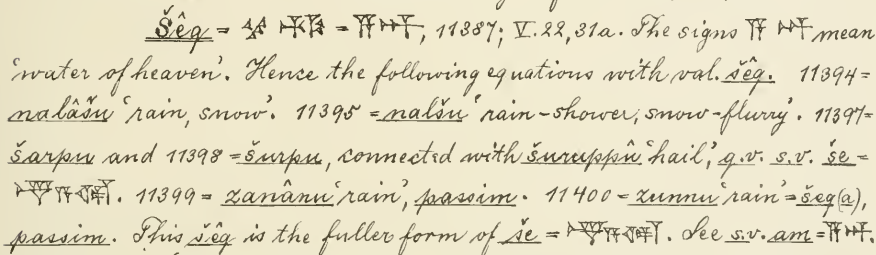 Šêg = = 𒀀𒀭, 11387; V. 22, 31a. The signs 𒀀𒀭 mean
'water of heaven'. Hence the following equations with val. šêg. 11394=
nalâšu 'rain, snow'. 11395 = nalšu 'rain-shower, snow-flurry'. 11397=
šarpu and 11398 = šurpu, connected with šuruppû 'hail', q.v. s.v. še =
. 11399 = zanânu 'rain', passim. 11400 = zunnu 'rain' = šeg(a),
passim. This šêg is the fuller form of še = . See s.v. am = 𒀀𒀭.